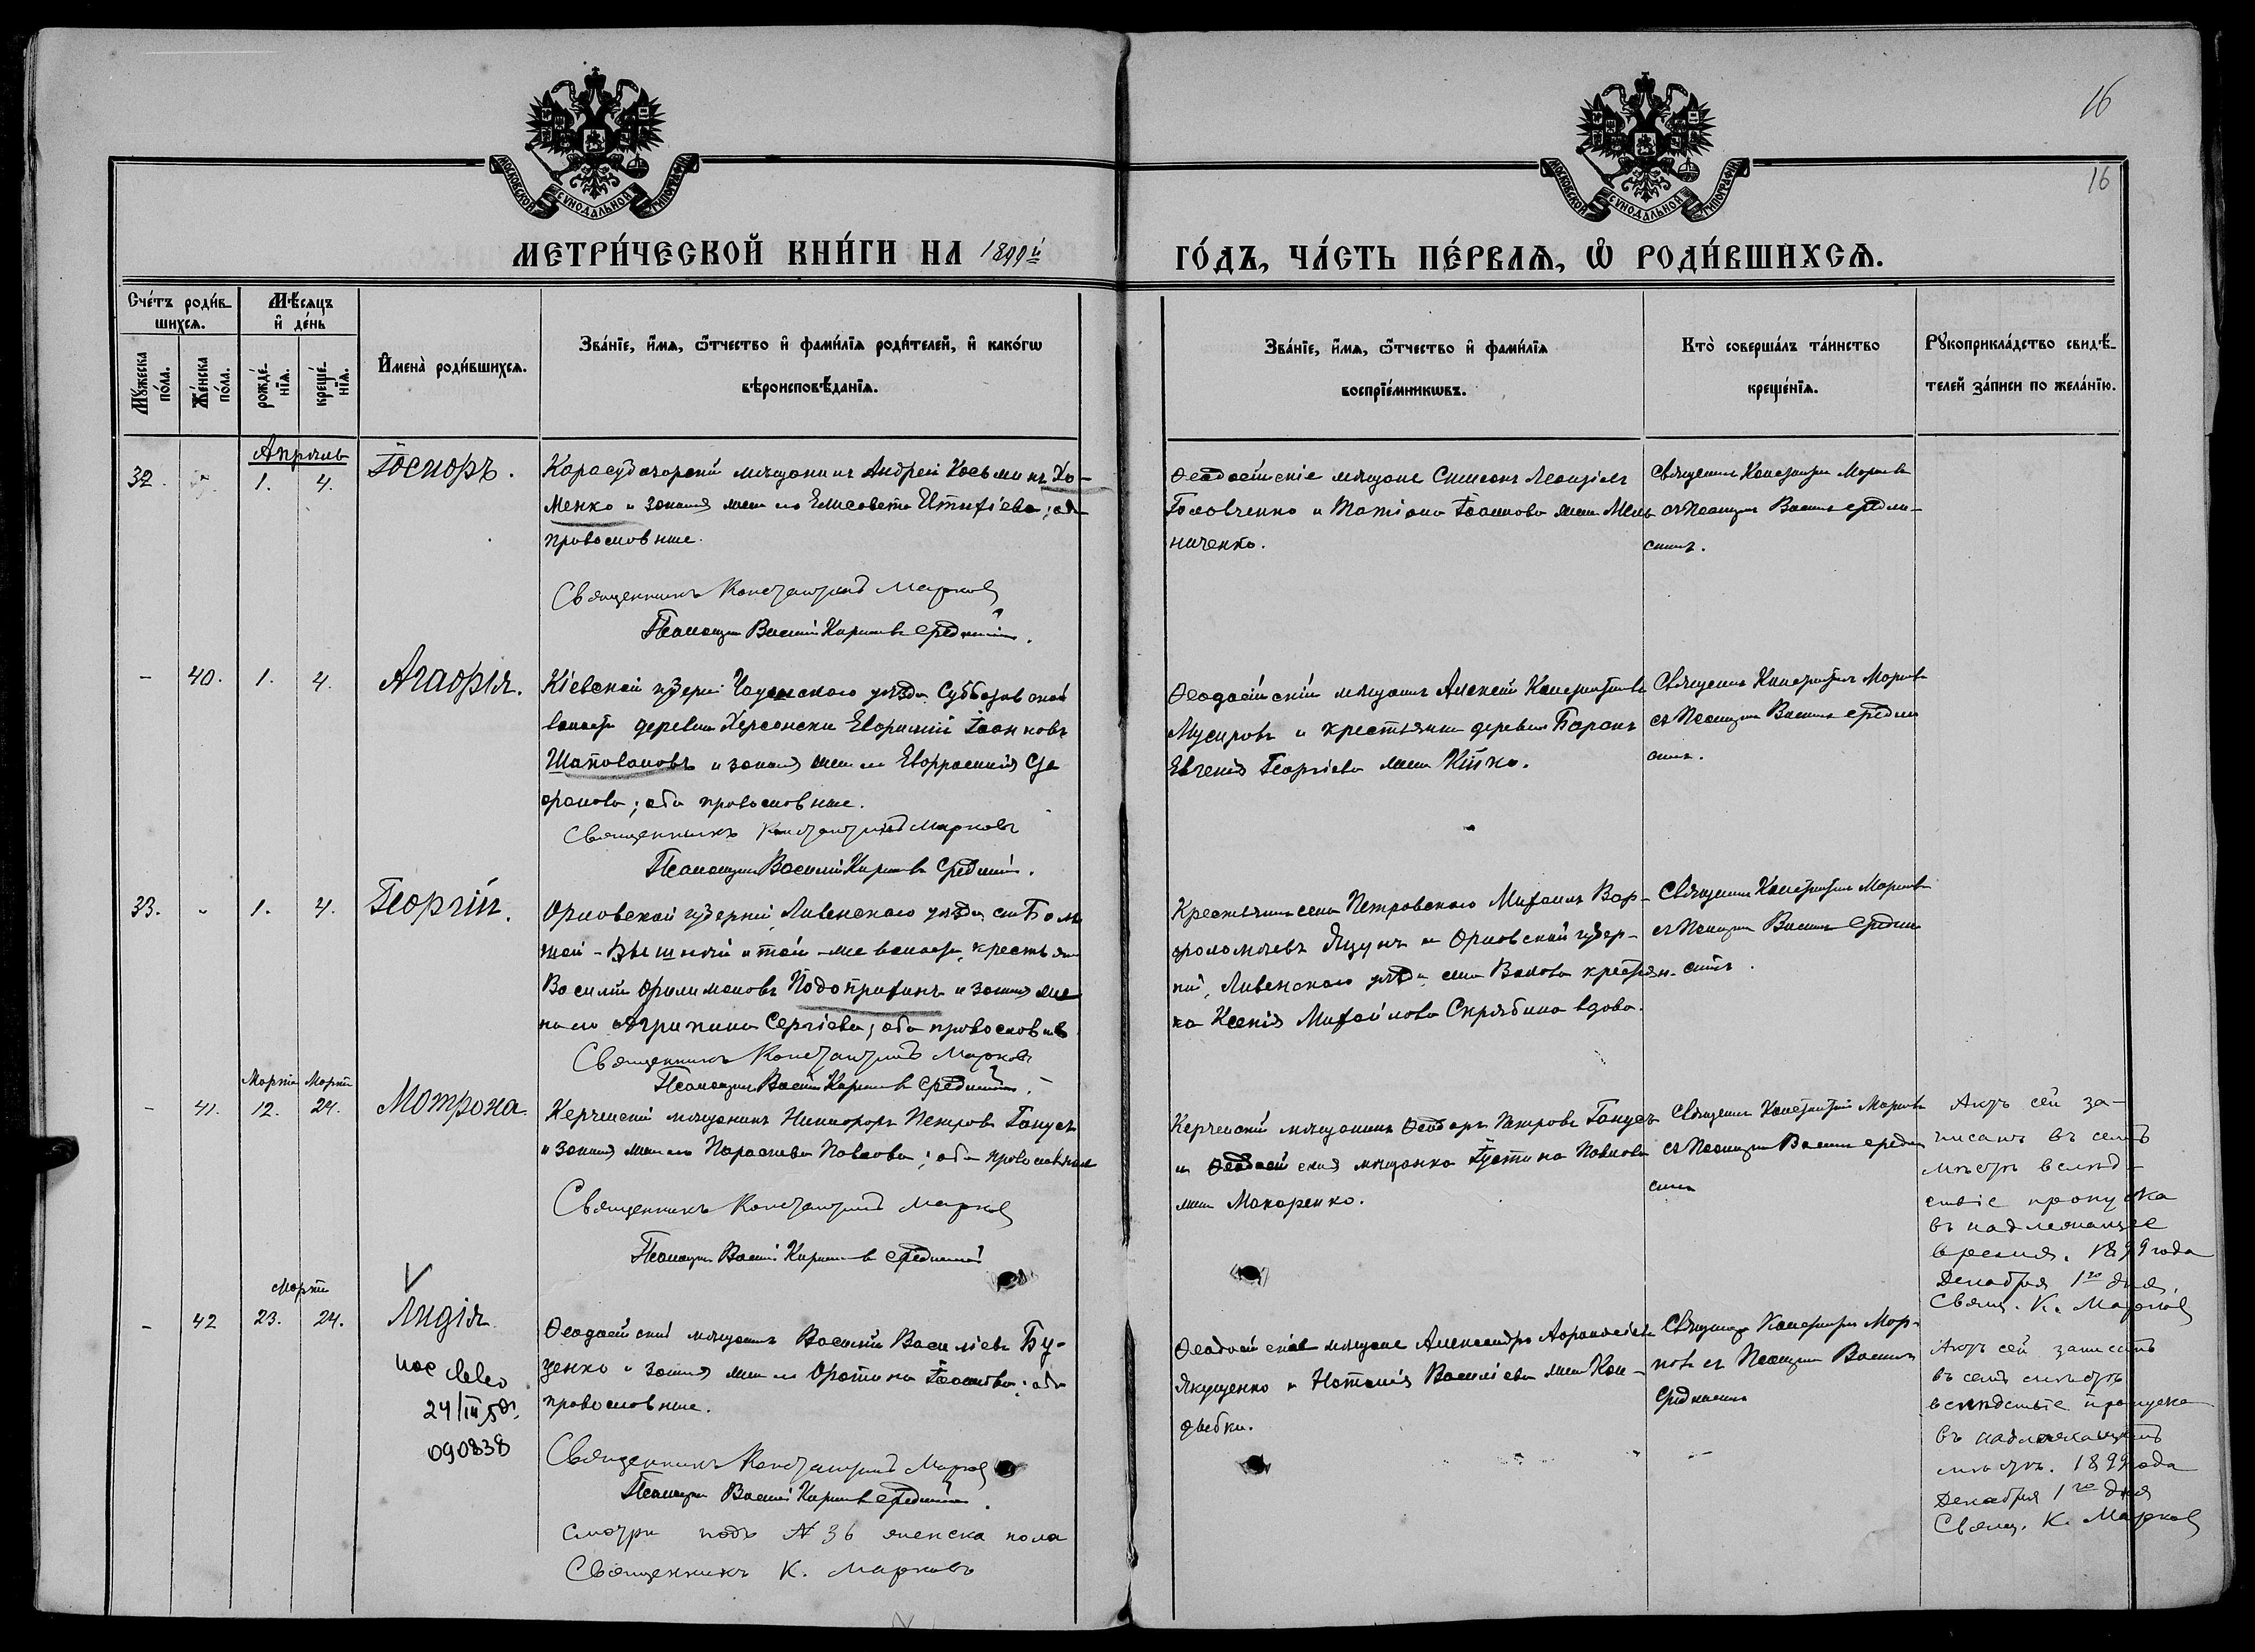 16
16
МОСКОВСКОЙ СѴНОДАЛЬНОЙ ТИПОГРАФІИ
МОСКОВСКОЙ СѴНОДАЛЬНОЙ ТИПОГРАФІИ
МЕТРИ́ЧЕСКОЙ КНИ́ГИ НА 1899й
ГО́ДЪ, ЧА́СТЬ ПЕ́РВАѦ, Ѽ РОДИ́ВШИХСѦ.
Сче́тъ роди́в-
шихсѧ.
Мѣ́сѧцъ
и҆ де́нь
Мꙋжеска
по́ла.
Же́нска
по́ла.
рожде́-
нїѧ.
креще́-
нїѧ.
И҆мена̀ роди́вшихсѧ.
Зва́нїе, и҆́мѧ, ѻ҆́тчество и҆ фами́лїѧ роди́телей, и҆ како́гѡ
вѣроисповѣ́данїѧ.
Зва́нїе, и҆́мѧ, ѻ҆́тчество и҆ фами́лїѧ
воспрїе́мникѡвъ.
Кто̀ соверша́лъ та́инство
креще́нїѧ.
Рꙋкоприкла́дство свидѣ́-
телей за́писи по жела́нїю.
Апрѣль
32. 1. 4. Іосифъ.
Карасубазарскій мѣщанинъ Андрей Косьминъ Хо-
менко и законная жена его Елисавета ; оба
православные.
Священникъ Константинъ Марковъ
Псаломщикъ Василій Средницкій.
Ѳеодосійскіе мѣщане Симеонъ Леонтіевъ
Головченко и Татіана Іоаннова жена Мель-
ниченко.
Священникъ Константинъ Марковъ
съ Псаломщик. Василіем Средни-
- 40. 1. 4. Агафія.
Кіевской губерніи уѣзда Субботовской
волости деревни Херсонски Евфимій Іоанновъ
Шаповаловъ и законная жена его Евфросинія Сте
фанова; оба православные.
Священникъ Константинъ Марковъ
Псаломщикъ Василій Средницкій.
Ѳеодосійскій мѣщанин Алексей Константиновъ
и крестьянка деревни Баракъ
Евгенія Георгіева жена
Священник Константин Марков
съ Псаломщик. Василіем Средниц
33. 1. 4. Георгій.
Орловской губерніи, Ливенскаго уѣзда села
и той-же волости, крестьянин
Василій Филимоновъ Подопригинъ и законная же
на его Агрипина Сергіева; оба православные
Священникъ Константинъ Марковъ
Псаломщикъ Василій Средницкій.
Крестьянинъ села Петровскаго Михаилъ Вар-
фоломѣевъ Яцунъ и Орловской губер-
ніи, Ливенскаго уѣзда села крестьян-
ка Ксенія Михайлова Скрябина вдова.
Священник Константин Марков
съ Псаломщик. Василіем Средниц
Марта Марта
- 41. 12. 24. Матрона.
Керченскій мѣщанинъ Никифоръ Петровъ Ганусъ
и законная жена его Параскева Павлова; оба православные
Священникъ Константинъ Марковъ
Псаломщик Василій Средницкій
Керченскій мѣщанинъ Ѳеодоръ Петровъ Ганусъ
и Ѳеодосійская мѣщанка Іустина Павлова
жена Макаренко.
Священник Константин Марков
съ Псаломщик. Василіем Средниц
Актъ сей за-
писанъ въ семъ
мѣстѣ вслѣд-
ствіе пропуска
въ надлежащее
время. 1899 года
Декабря 1го дня.
Свящ. К. Марковъ
Марта
- 42 23. 24. Лидія
24/III 
090838
Ѳеодосійскій мѣщанинъ Василій Василіевъ Бу-
ценко и законная жена его Фотина Іоаннова; оба
православные.
Священникъ Константинъ Марковъ
Псаломщик Василій Средницкій.
Смотри подъ № 36 женска пола
Священникъ К. Марковъ
Ѳеодосійскіе мѣщане Александръ Аѳанасіевъ
Якущенко и Наталія Василіева жена Кон-
Священник Константин Мар-
ков съ Псаломщик Василіем
Средницким
Актъ сей записанъ
въ семъ мѣстѣ
вслѣдствіе пропуска
въ надлежащемъ
мѣстѣ. 1899 года
Декабря 1го дня
Свящ. К. Марковъ